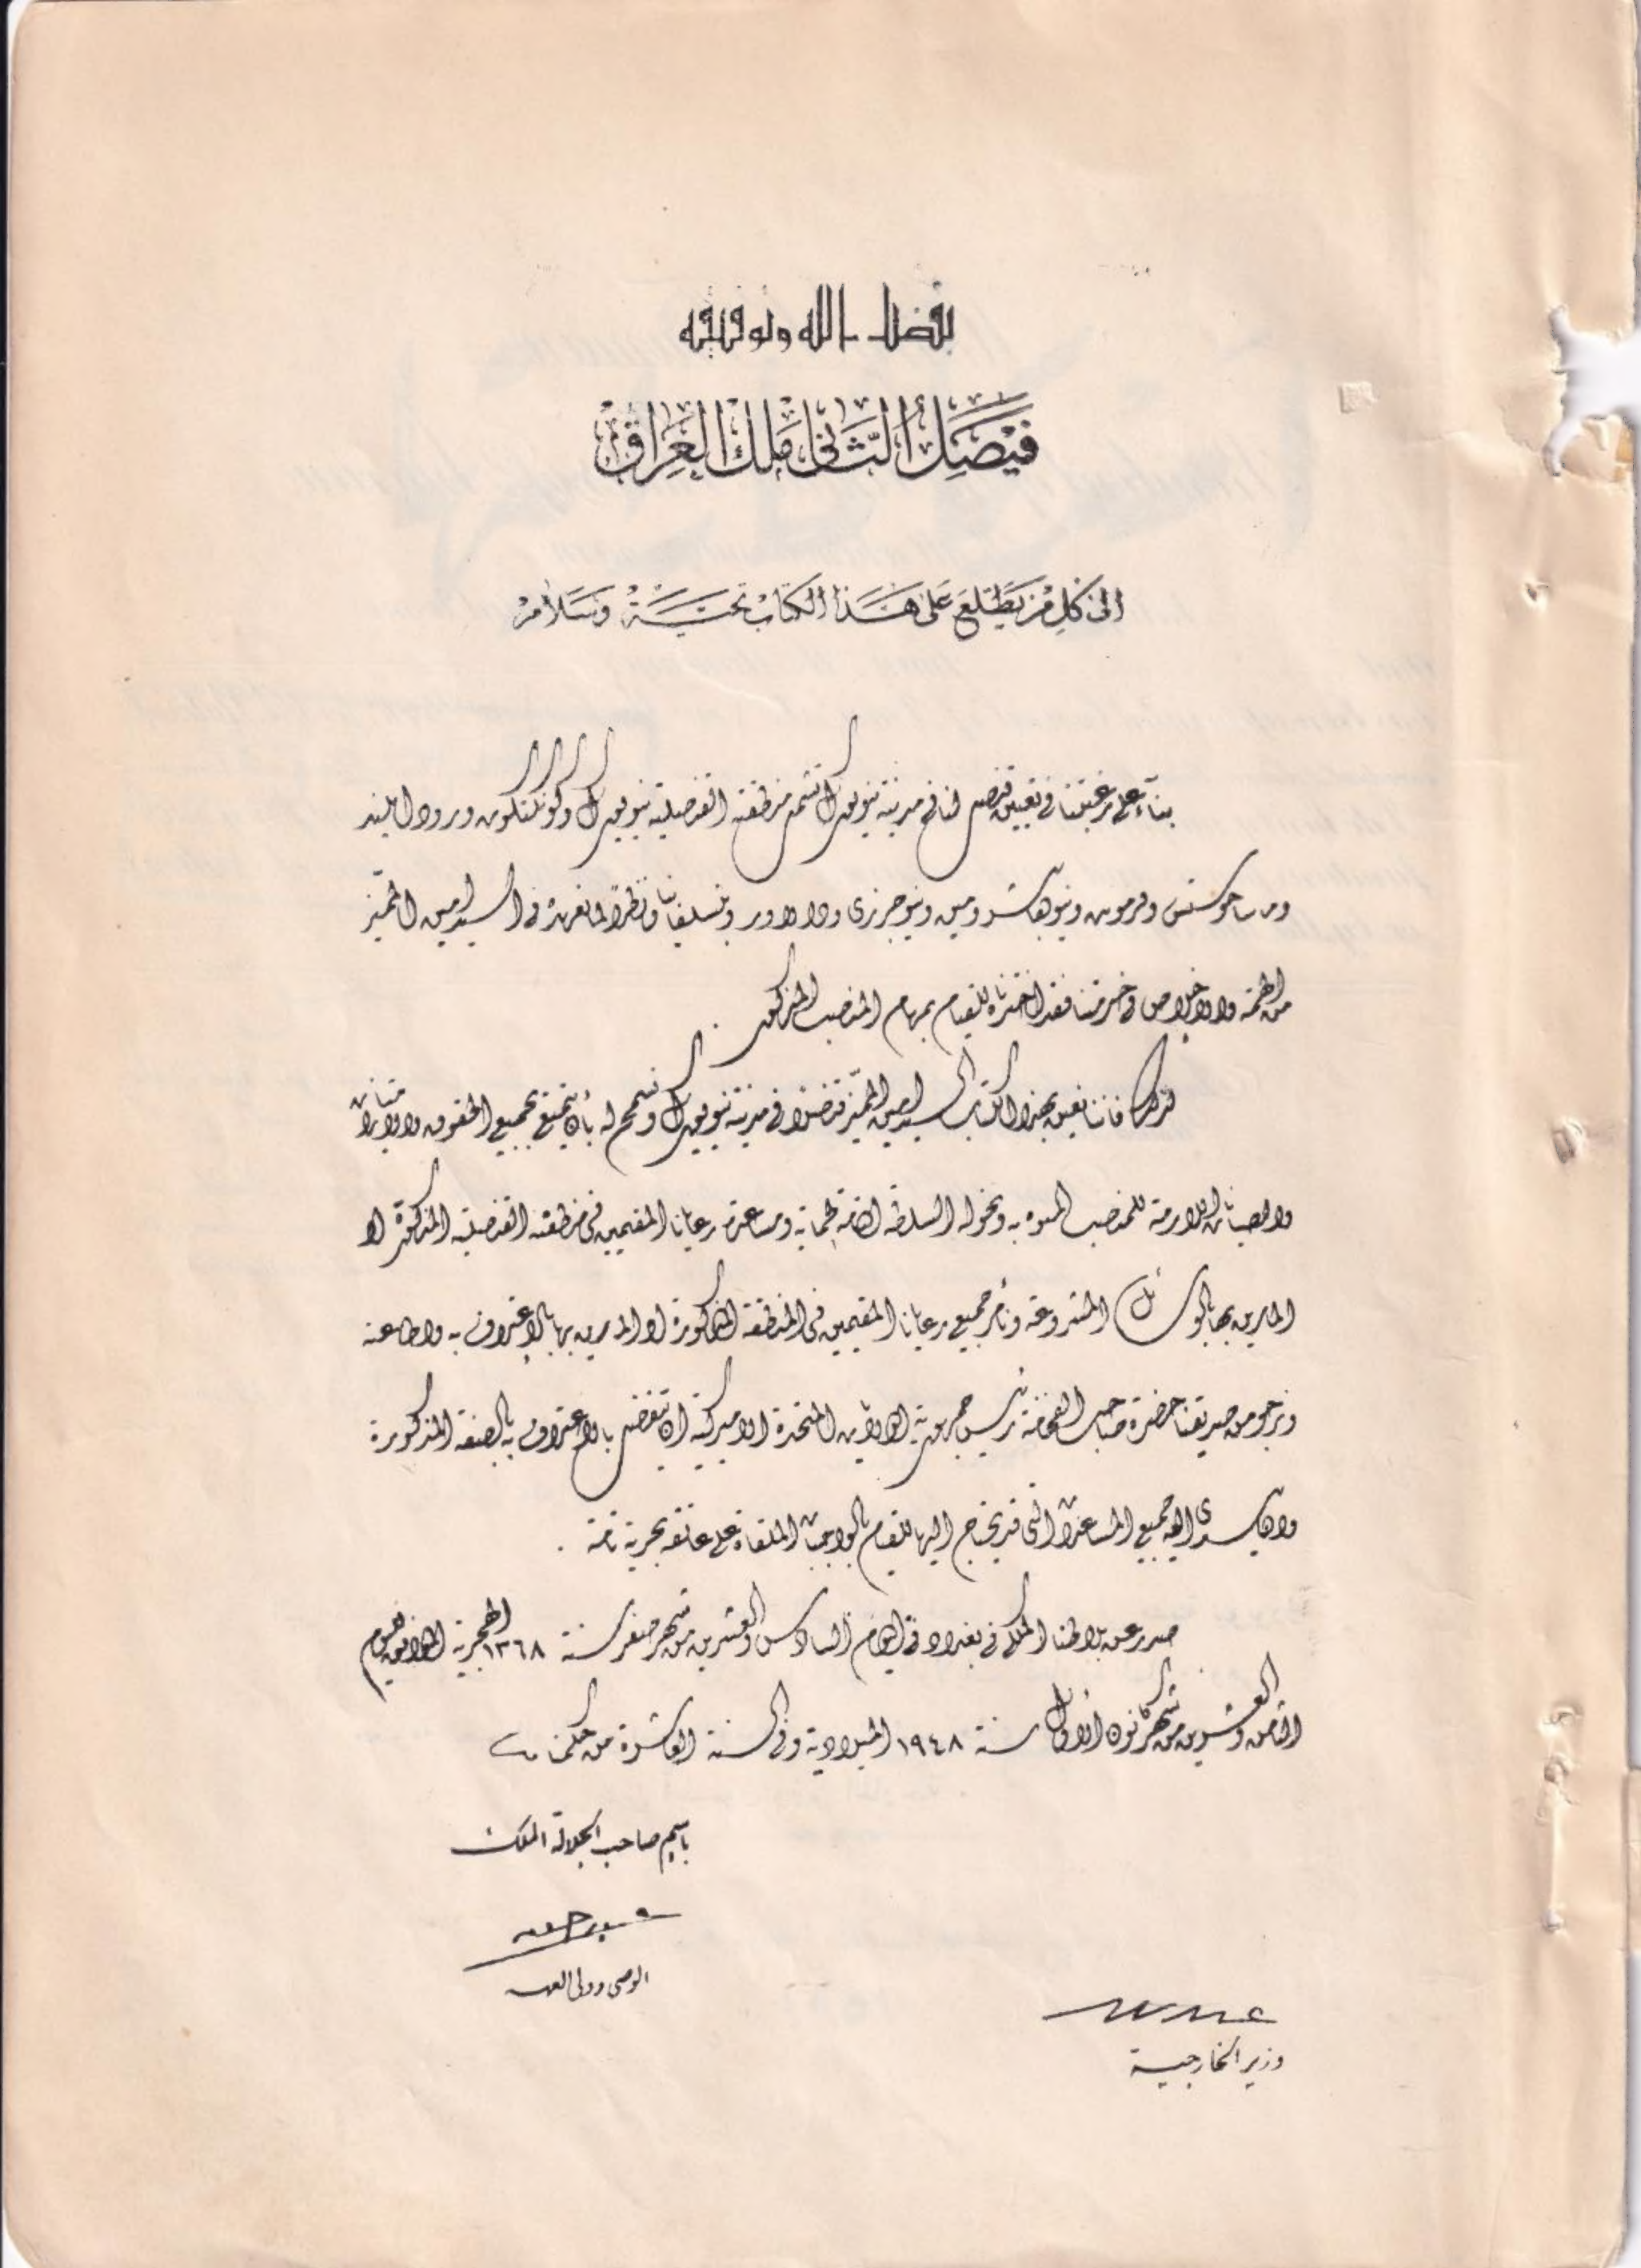 بفضل الله وتوفيقه
فَيْصَلُ الثَّانِي مَلِكُ العِرَاقِ
الى كل من يطلع على هذا الكتاب تحية وسلام
بناءً على رغبتنا في تعيين قنصل لنا في مدينة نيويورك تشمل منطقته القنصلية نيويورك وكونكتكوت ورود ايلند
وماساجوستس وفرمونت ونيوهامشر ومين ونيوجرزي ودالاور وبنسلفانيا ونظراً لما نعهده في السيد امين المميّز
من الهمة والاخلاص في خدمتنا فقد اخترناه للقيام بمهام المنصب المذكور .
لذلك فاننا نعين بهذا الكتاب السيد امين المميّز قنصلاً في مدينة نيويورك ونسمح له بأن يتمتع بجميع الحقوق والامتيازات
والصيانات اللازمة للمنصب المنوه به ونخوله السلطة التامة لحماية ومساعدة رعايانا المقيمين في منطقته القنصلية المذكورة او
المارين بها بالوسائل المشروعة ونأمر جميع رعايانا المقيمين في المنطقة المذكورة او المارين بها بالاعتراف به واطاعته
ونرجو من صديقنا حضرة صاحب الفخامة رئيس جمهورية الولايات المتحدة الاميركية ان يتفضل بالاعتراف به بالصفة المذكورة
وان يسدى اليه جميع المساعدات التي قد يحتاج اليها للقيام بالواجبات الملقاة على عاتقه بحرية تامة .
صدر عن بلاطنا الملكي في بغداد في اليوم السادس والعشرين من شهر صفر سنة ١٣٦٨ الهجرية الموافق لليوم
الثامن والعشرين من شهر كانون الاول سنة ١٩٤٨ الميلادية وفي السنة العاشرة من حكمنا
باسم صاحب الجلالة الملك
الوصي وولي العهد
وزير الخارجية